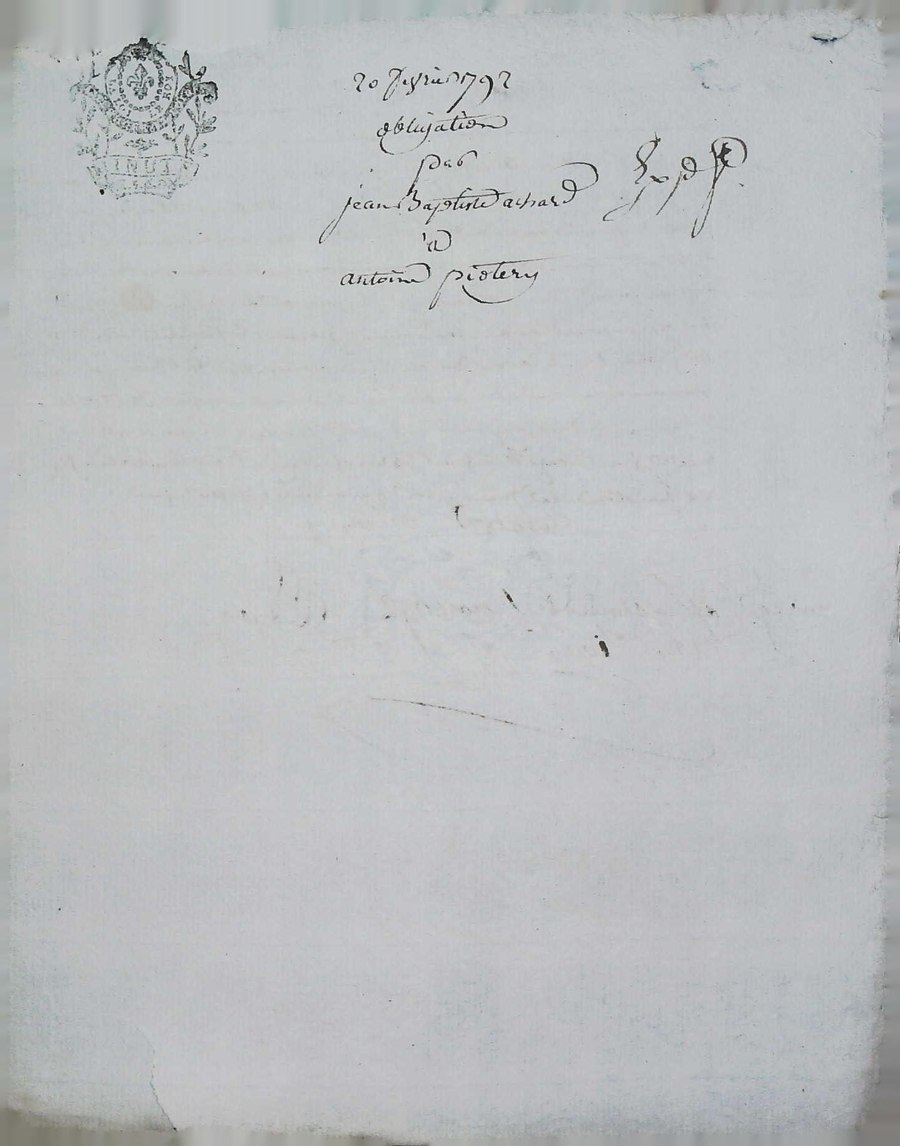 20 fevrier 1792
obligation
par
jean Baptiste achard
à
antoine pietery
LA LOI ET LE ROI